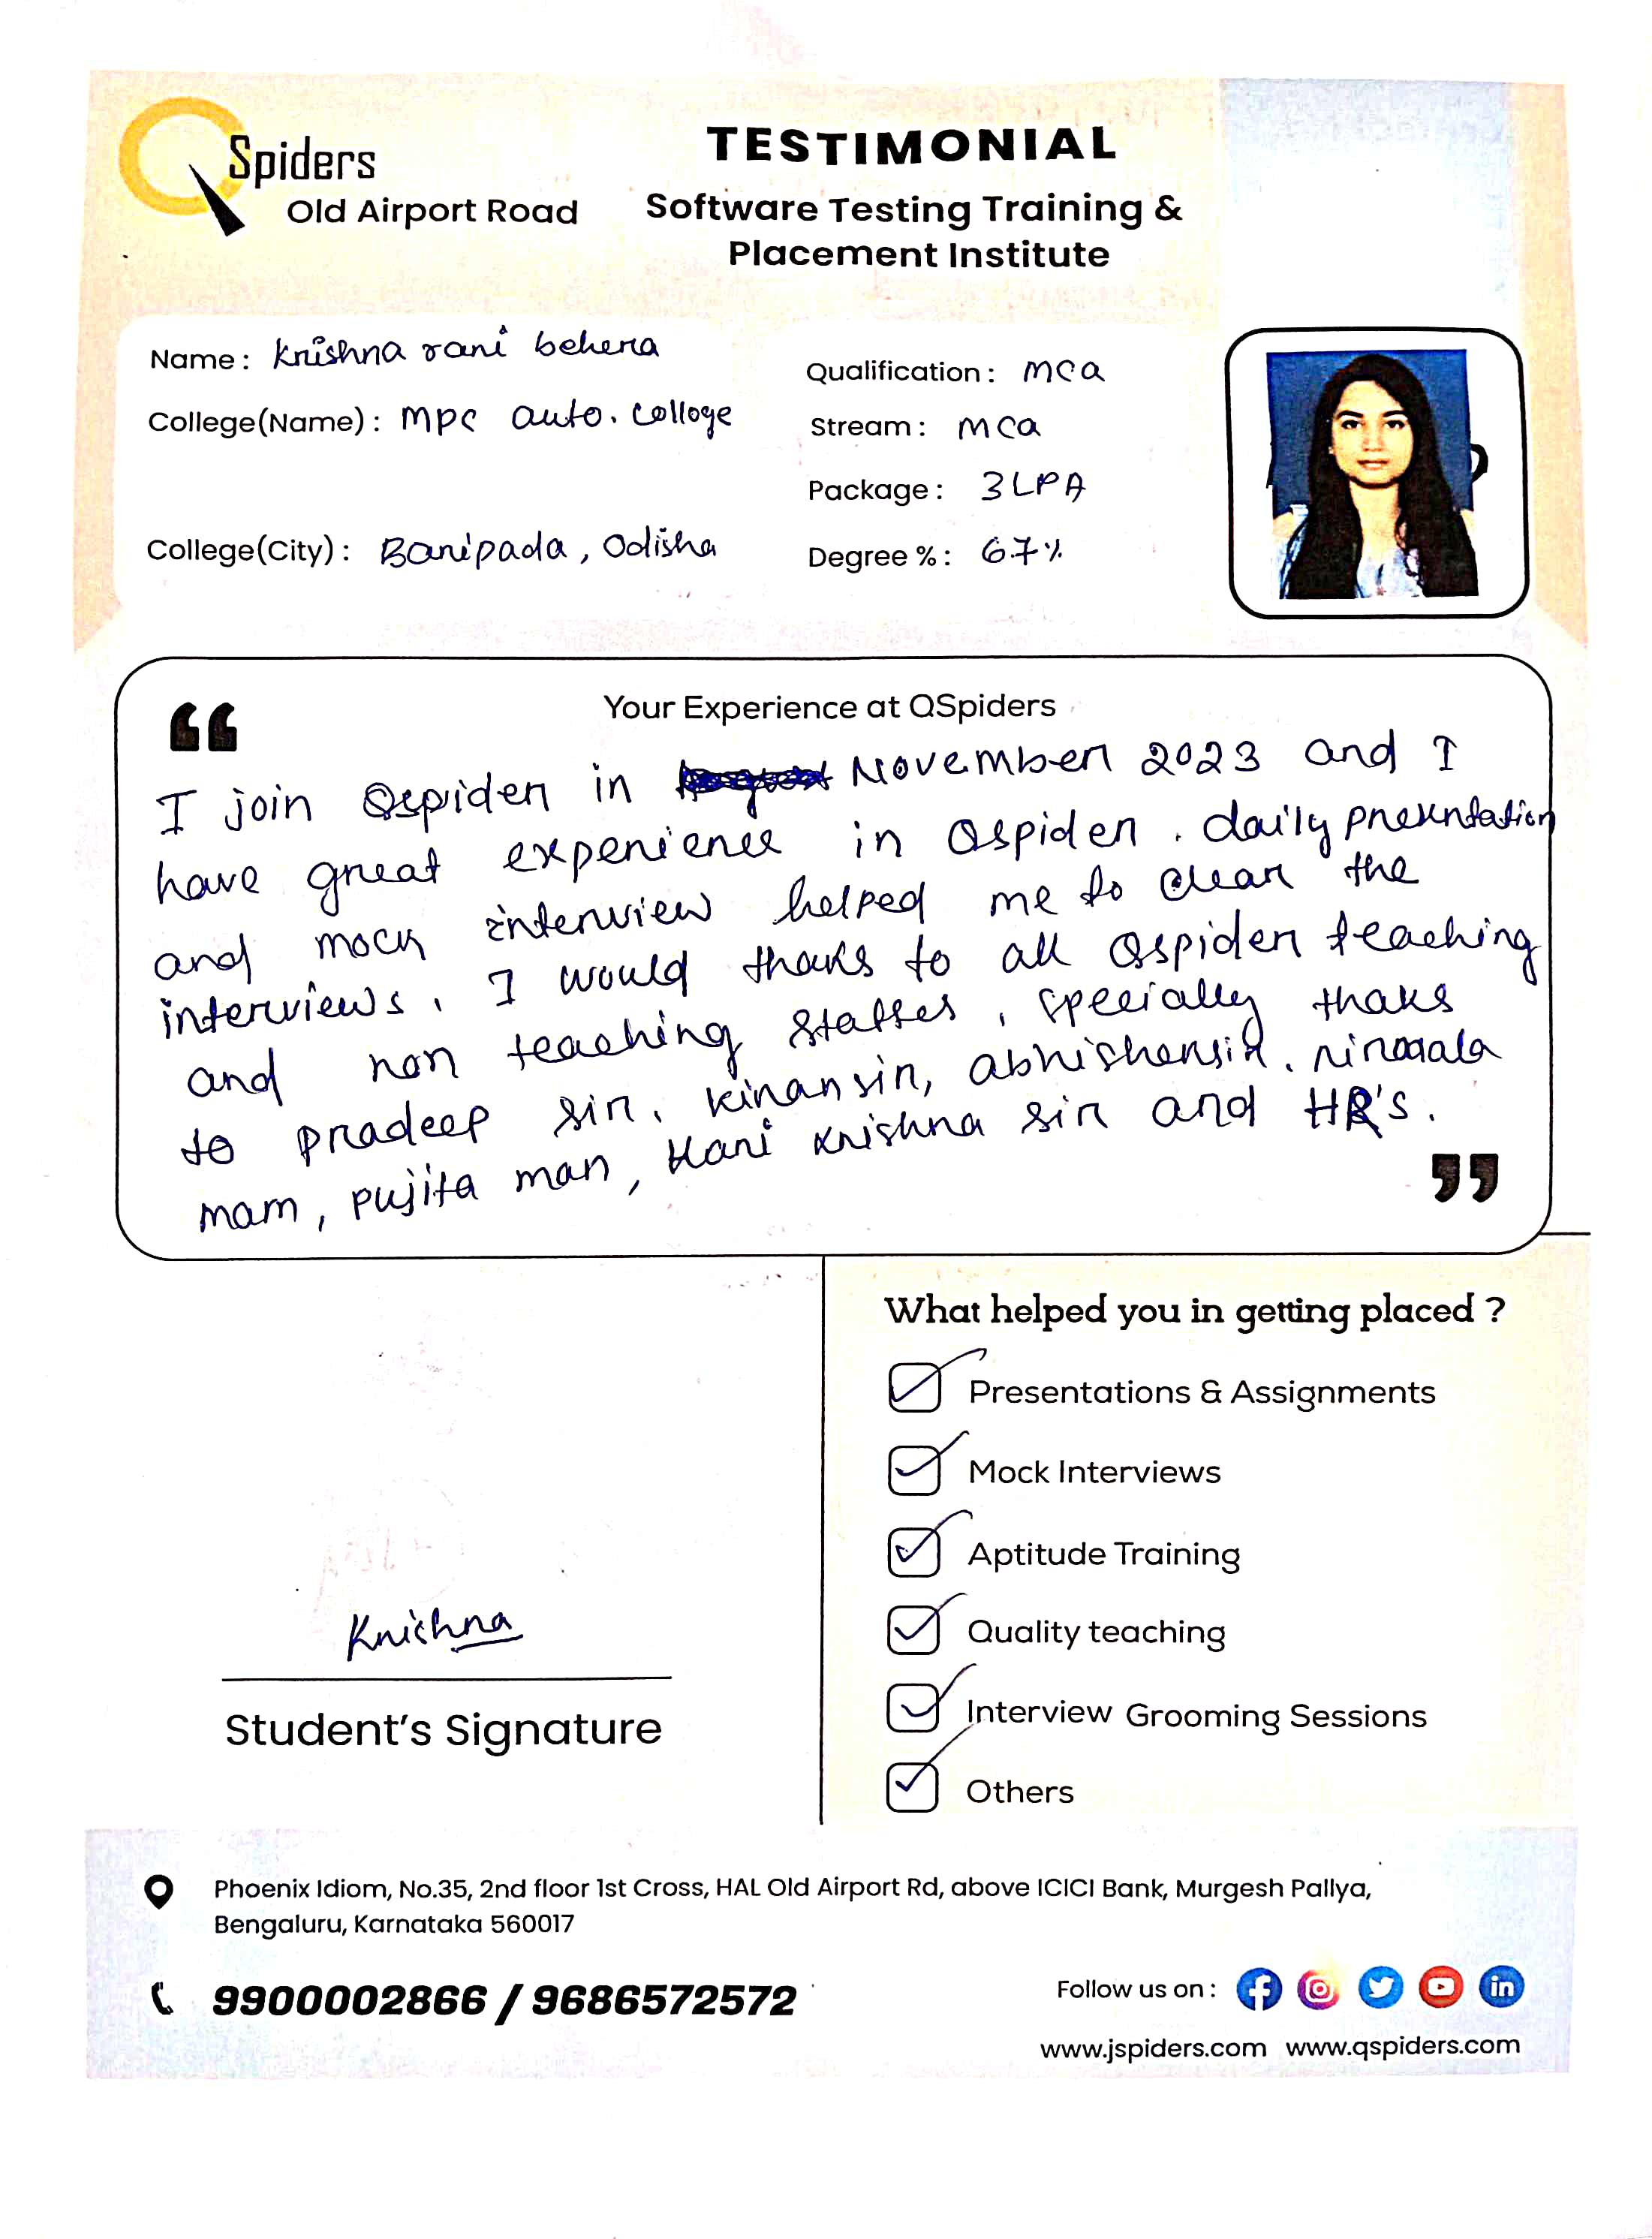 QSpiders
Old Airport Road
TESTIMONIAL
Software Testing Training &
Placement Institute
Name : Krishna rani behera
College(Name) : MPC auto. colloge
College(City) : Baripada, Odisha
Qualification : MCA
Stream : MCA
Package : 3 LPA
Degree % : 67%
Your Experience at QSpiders
I join Qspider in November 2023 and I
have great experience in Qspider. daily presentation
and mock interview helped me to clear the
interviews. I would thanks to all Qspider teaching
and non teaching staffes, specially thanks
to pradeep sir, kiran sir, abhishek sir, nirmala
mam, pujita mam, Hari Krishna sir and HR's.
Krishna
Student's Signature
What helped you in getting placed ?
Presentations & Assignments
Mock Interviews
Aptitude Training
Quality teaching
Interview Grooming Sessions
Others
Phoenix Idiom, No.35, 2nd floor 1st Cross, HAL Old Airport Rd, above ICICI Bank, Murgesh Pallya,
Bengaluru, Karnataka 560017
9900002866 / 9686572572
Follow us on :
www.jspiders.com www.qspiders.com